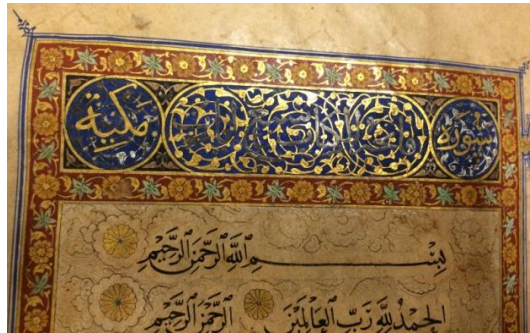 سورة فاتحة الكتاب مكية
بسم الله الرحمن الرحيم
الحمد لله رب العالمين الرحمن الرحيم